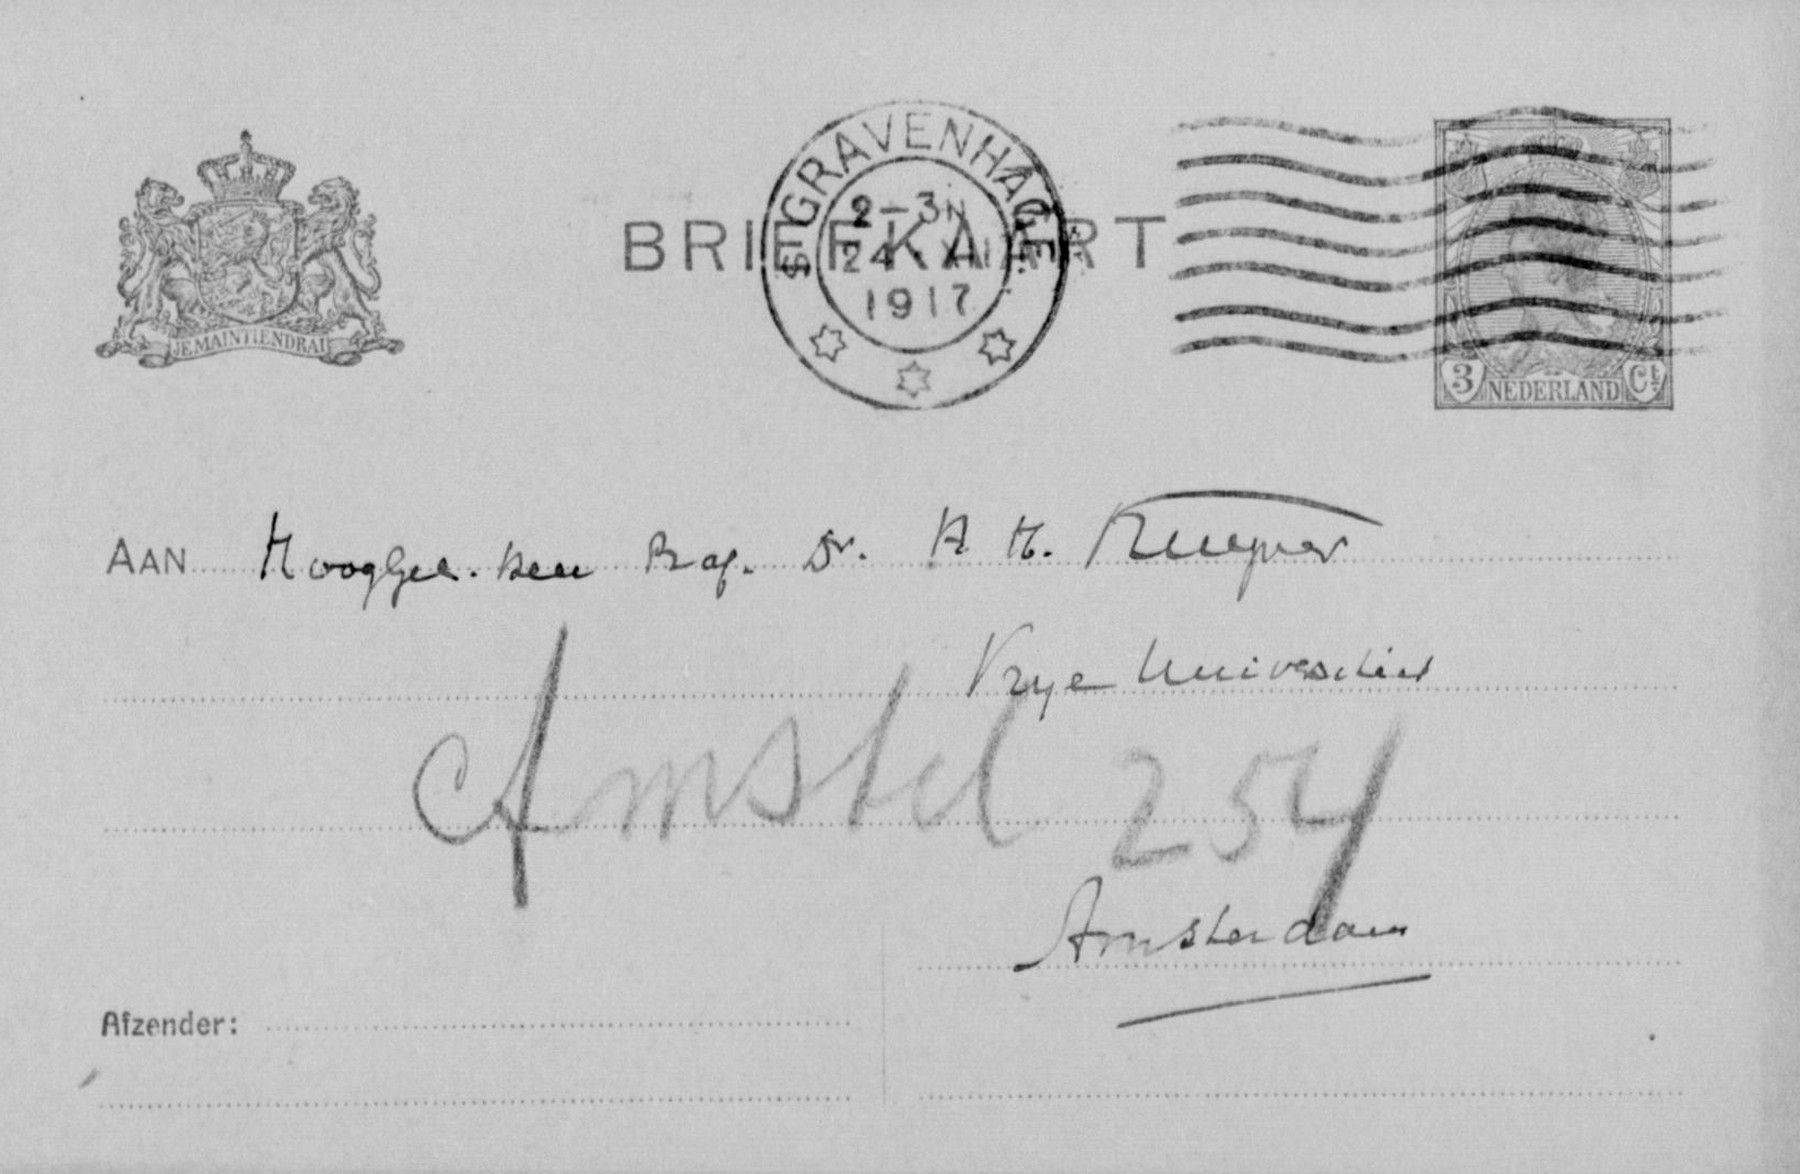 'S GRAVENHAGE
2-3N
24.XII
1917
BRIEFKAART
JE MAINTIENDRAI
3 NEDERLAND Ct
AAN HoogGel. heer Prof. Dr. H. H. Kuyper
Vrye Universiteit
Amstel 254
Amsterdam
Afzender: